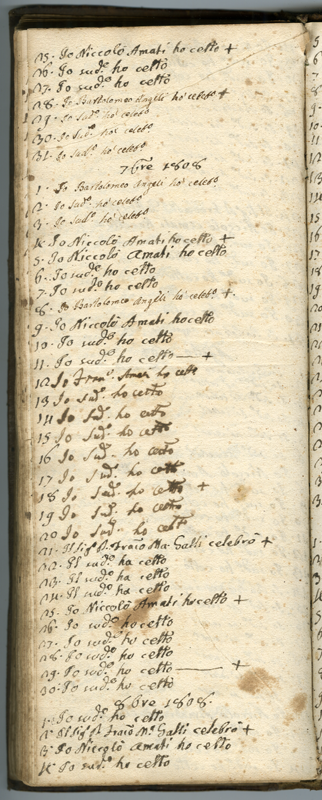 25. Io Niccolò Amati ho cettō +
26. Io sud.º ho cettō
27. Io sud.º ho cettō
28. Io Bartolomeo Angeli ho celebº +
29. Io sud.º ho celebº
30. Io sud.º ho celebº
31. Io sud.º ho celebº
7bre 1808
1. Io Bartolomeo Angeli ho celebº
2. Io sud.º ho celebº
3. Io sud.º ho celebº
4. Io Niccolò Amati ho cettō +
5. Io Niccolò Amati ho cettō
6. Io sud.º ho cettō
7. Io sud.º ho cettō
8. Io Bartolomeo Angeli ho celebº +
9. Io Niccolò Amati ho cettō
10. Io sud.º ho cettō
11. Io sud.º ho cettō — +
12 Io Franº Amati ho cettō
13 Io sud.º ho cettō
14 Io Sud.º ho cettō
15 Io Sud.º ho cettō
16 Io Sud.º ho cettō
17 Io Sud.º ho cettō
18 Io Sud.º ho cettō +
19 Io Sud.º ho cettō
20 Io Sud.º ho cettō
21. Il Sigʳ D. Galli celebrō +
22. Il sud.º ha cettō
23. Il sud.º ha cettō
24. Il sud.º ha cettō
25. Io Niccolò Amati ho cettō +
26. Io sud.º ho cettō
27. Io sud.º ho cettō
28. Io sud.º ho cettō
29. Io sud.º ho cettō — +
30. Io sud.º ho cettō
8bre 1808.
1. Io sud.º ho cettō
2. Il Sigʳ D. Galli celebrō +
3. Io Niccolò Amati ho cettō
4. Io sud.º ho cettō